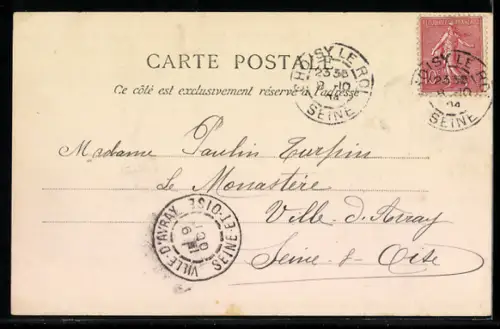 CARTE POSTALE
Ce côté est exclusivement réservé à l'adresse
CHOISY LE ROI
23 35
8 - 10
04
SEINE
CHOISY LE ROI
23 35
8 - 10
04
SEINE
Madame Paulin Turpin
Le Monastère
Ville d'Avray
Seine & Oise
VILLE-D'AVRAY
SEINE-ET-OISE